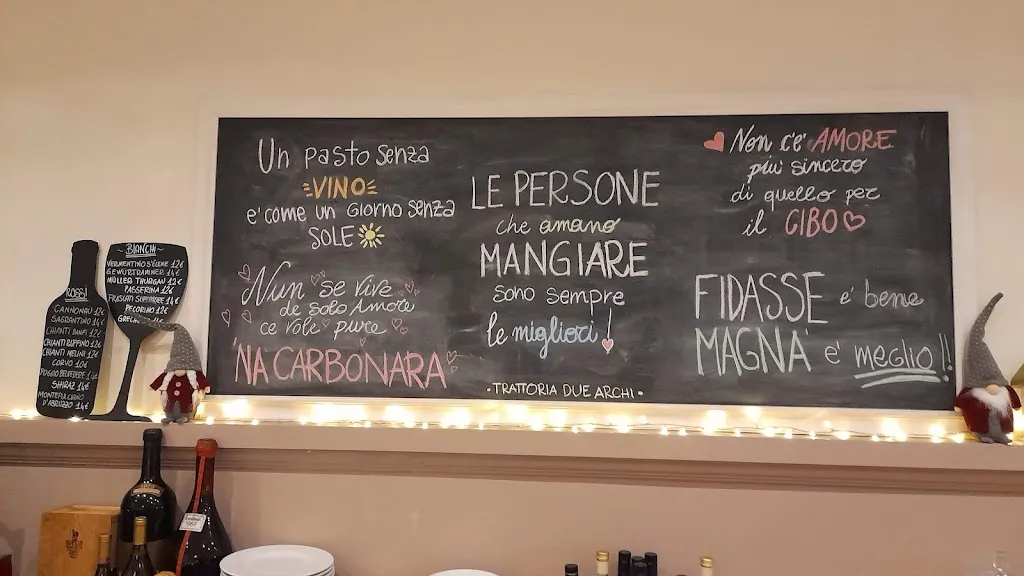 Un pasto senza
VINO
e' come un giorno senza
SOLE
Nun se vive
de solo Amore
ce vole pure
'NA CARBONARA
LE PERSONE
che amano
MANGIARE
sono sempre
le migliori!
• TRATTORIA DUE ARCHI •
Non c'è AMORE
più sincero
di quello per
il CIBO
FIDASSE e' bene
MAGNA' e' meglio!!
ROSSI
CANNONAU 12€
SAGRANTINO 14€
CHIANTI RUFFINO 12€
CHIANTI MELINI 12€
CORVO 10€
SHIRAZ 14€
MONTEPULCIANO
D'ABRUZZO 14€
~BIANCHI~
VERMENTINO 12€
GEWÜRTRAMINER 14€
MÜLLER THURGAU 12€
PASSERINA 12€
FRASCATI SUPERIORE 12€
PECORINO 12€